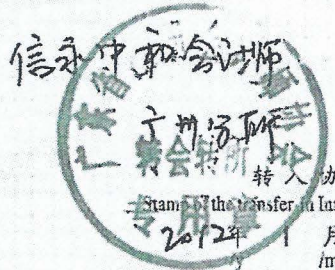 信永中和会计师
广州分所
广东省 师协会
转会转所
专用章
转入协
Stamp of the transfer-in Ins
2012年 1 月
/y /m